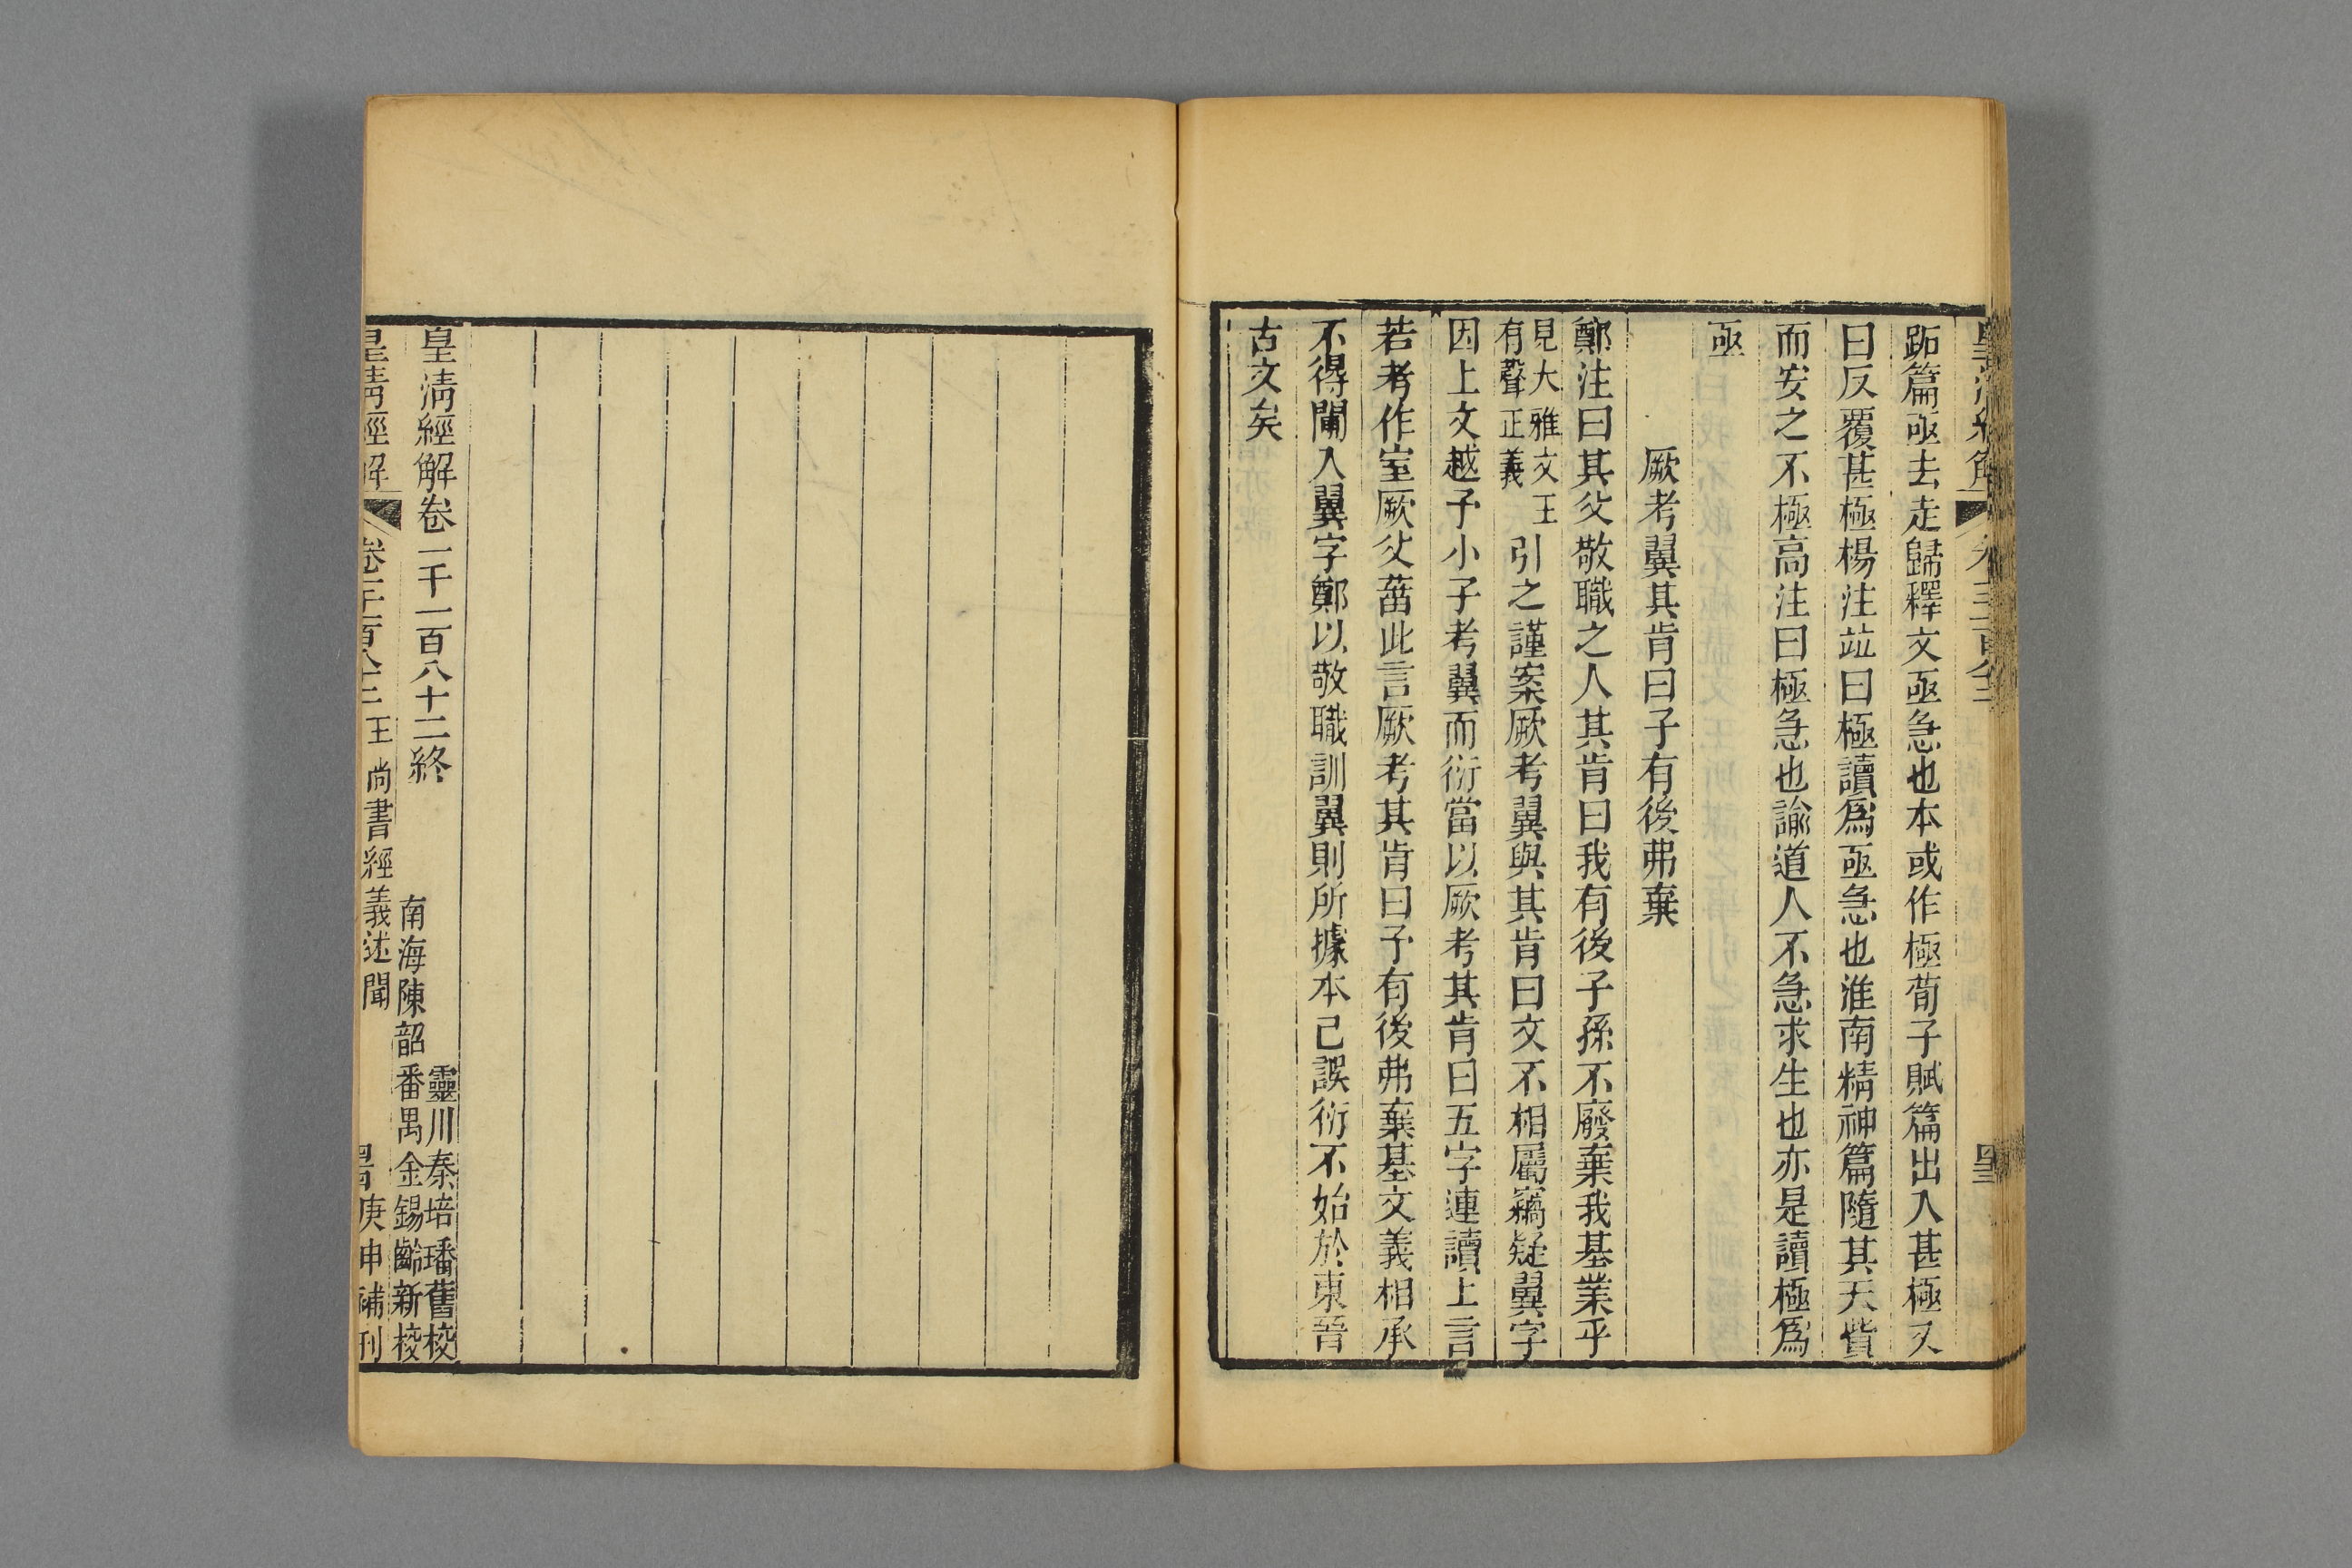 跖篇亟去走歸釋文亟急也本或作極荀子賦篇出入甚極又
曰反覆甚極楊注竝曰極讀爲亟急也淮南精神篇隨其天貲
而安之不極高注曰極急也諭道人不急求生也亦是讀極爲
亟
厥考翼其肯曰子有後弗棄
鄭注曰其父敬職之人其肯曰我有後子孫不廢棄我基業乎
見大雅文王
有聲正義
引之謹案厥考翼與其肯曰文不相屬竊疑翼字
因上文越予小子考翼而衍當以厥考其肯曰五字連讀上言
若考作室厥父菑此言厥考其肯曰予有後弗棄基文義相承
不得闌入翼字鄭以敬職訓翼則所據本已誤衍不始於東晉
古文矣
皇清經解卷一千一百八十二終
靈川秦培璠舊校
南海陳韶番禺金錫齡新校
皇清經解 卷一千一百八十二 王尚書經義述聞 庚申補刊